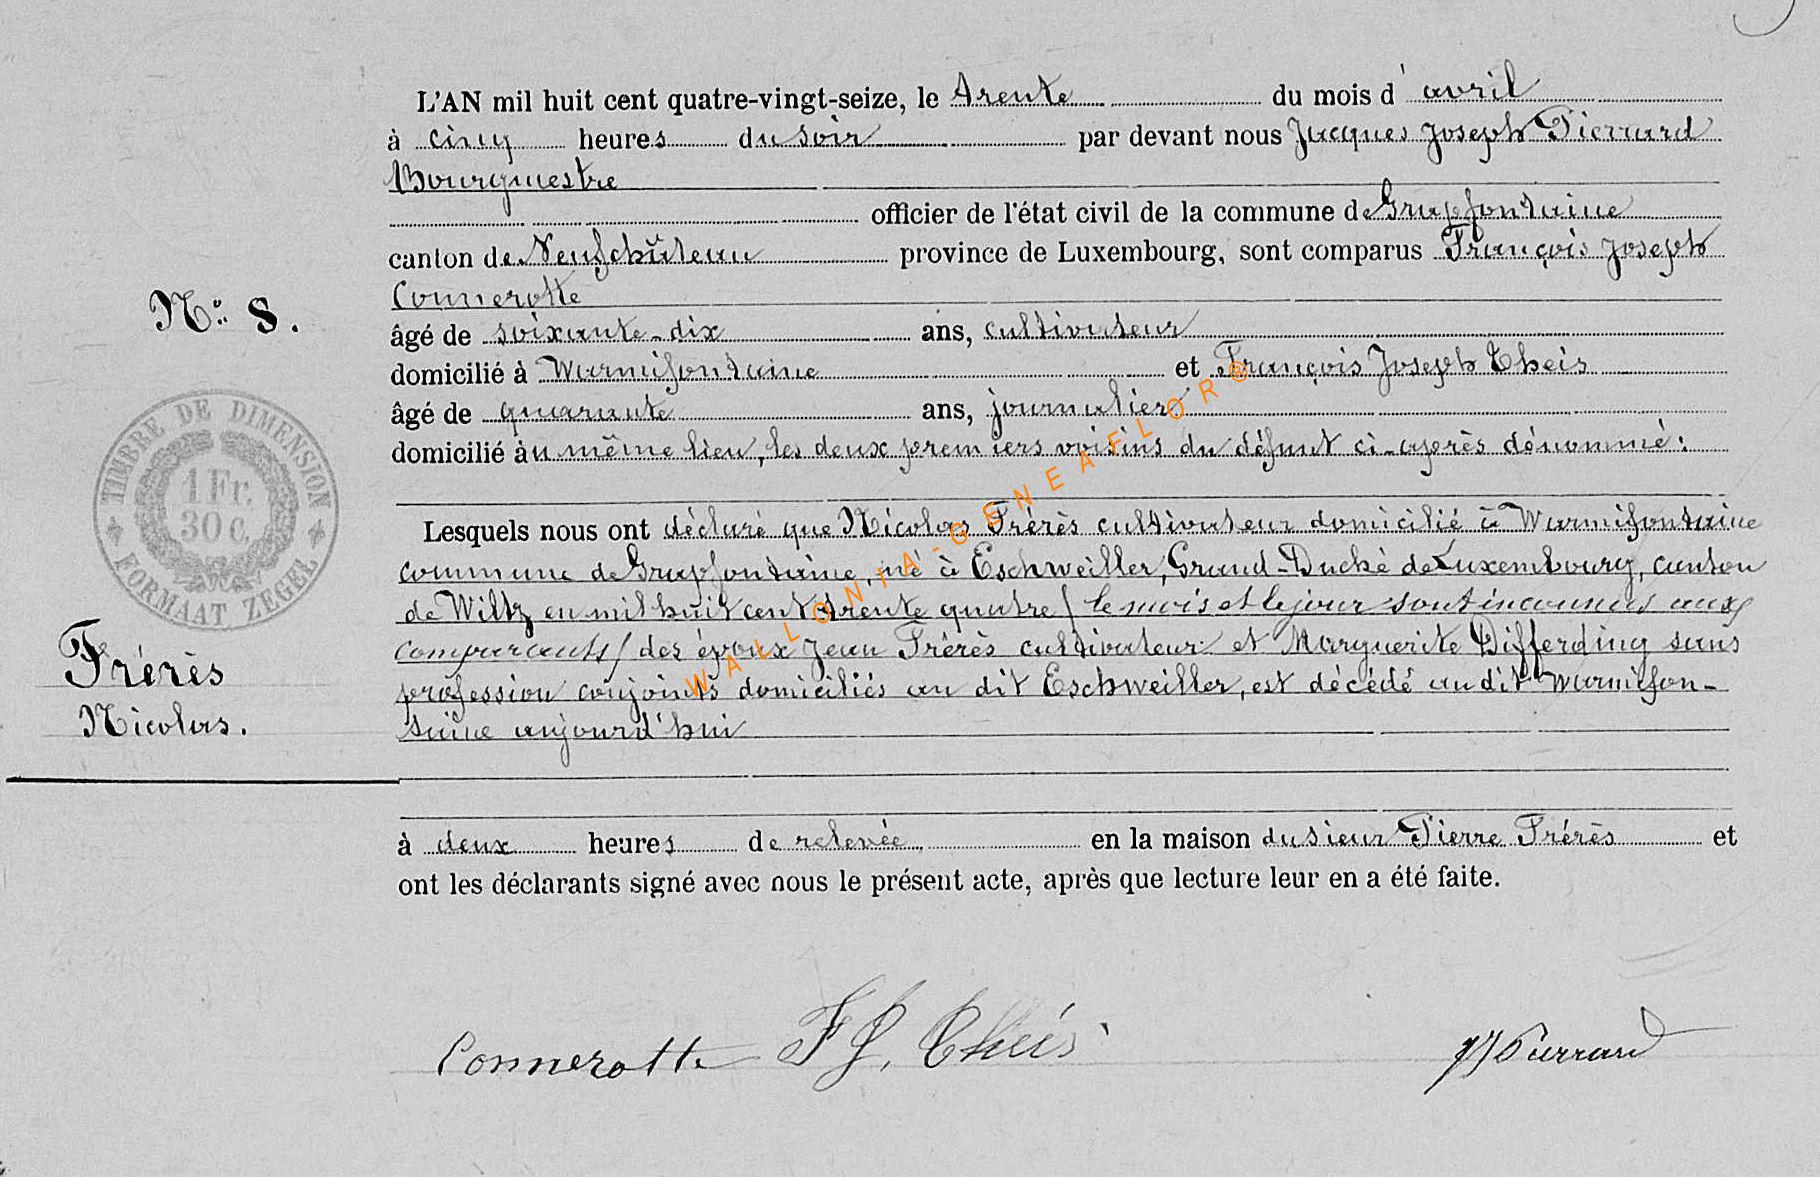 L'AN mil huit cent quatre-vingt-seize, le trente du mois d'avril
à cinq heures du soir par devant nous Jacques Joseph Pierrard
Bourgmestre
officier de l'état civil de la commune de Grapfontaine
canton de Neufchâteau province de Luxembourg, sont comparus François Joseph
Connerotte
N° 8.
âgé de soixante-dix ans, cultivateur
domicilié à Warmifontaine et François Joseph Theis
âgé de quarante ans, journalier
domicilié au même lieu, les deux premiers voisins du défunt ci-après dénommé:
TIMBRE DE DIMENSION
1 Fr.
30 c.
FORMAAT ZEGEL
Lesquels nous ont déclaré que Nicolas Frérès cultivateur domicilié à Warmifontaine
commune de Grapfontaine, né à Eschweiller, Grand-Duché de Luxembourg, canton
de Wiltz en mil huit cent trente quatre (le mois et le jour sont inconnus aux
comparants) des époux Jean Frérès cultivateur et Marguerite Differding sans
profession conjoints domiciliés au dit Eschweiller, est décédé au dit Warmifon-
taine aujourd'hui
Frérès
Nicolas.
à deux heures de relevée en la maison du sieur Pierre Frérès et
ont les déclarants signé avec nous le présent acte, après que lecture leur en a été faite.
Connerotte F J. Theis JJ Pierrard
WALLONIA-GENEAFLOR®